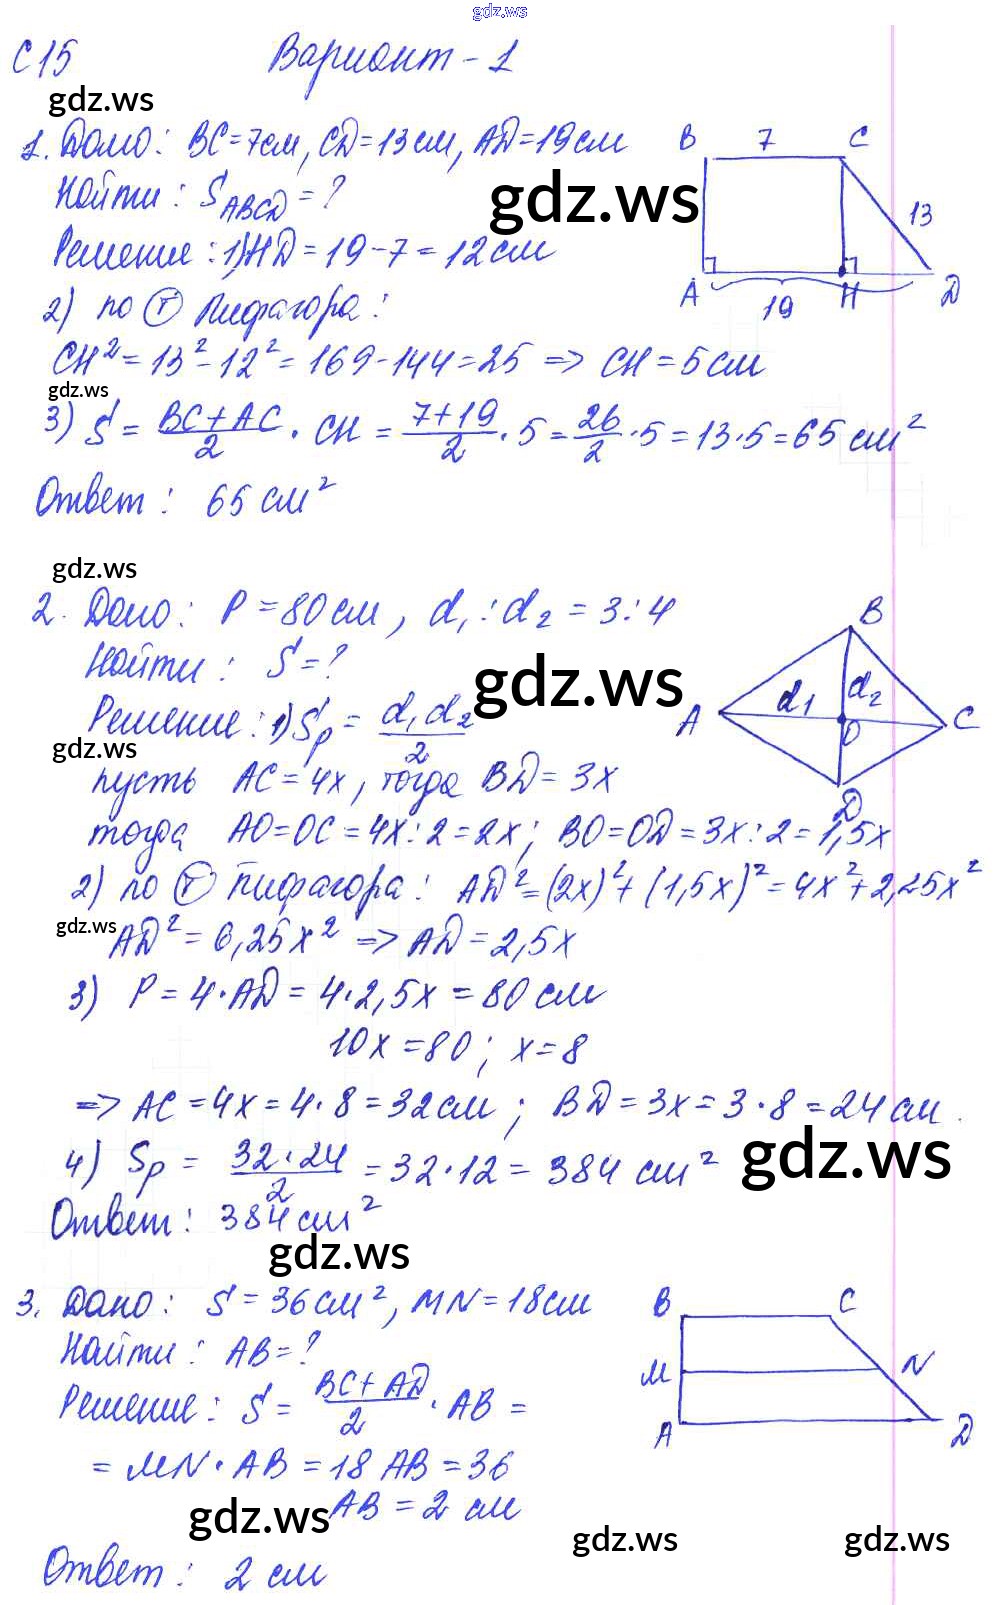 gdz.ws
С15 Вариант - 1
gdz.ws
1. Дано: BC=7см, CD=13см, AD=19см
Найти: S_ABCD = ?
gdz.ws
Решение: 1) HD = 19-7 = 12см
2) по (т) Пифагора:
CH² = 13² - 12² = 169-144=25 => CH = 5см
gdz.ws
3) S = (BC+AC)/2 · CH = (7+19)/2 · 5 = 26/2 · 5 = 13·5 = 65 см²
Ответ: 65 см²
B 7 C
13
A 19 H D
gdz.ws
2. Дано: P = 80см, d₁ : d₂ = 3 : 4
Найти: S = ?
gdz.ws
Решение: 1) Sр = d₁d₂/2
gdz.ws
пусть AC = 4x, тогда BD = 3x
тогда AO=OC=4x:2=2x; BO=OD=3x:2=1,5x
2) по (т) Пифагора: AD²=(2x)²+(1,5x)²=4x²+2,25x²
gdz.ws
AD² = 6,25x² => AD = 2,5x
3) P = 4·AD = 4·2,5x = 80 см
10x = 80; x = 8
=> AC = 4x = 4·8 = 32см; BD = 3x = 3·8 = 24см.
4) Sр = 32·24/2 = 32·12 = 384 см²
gdz.ws
Ответ: 384см²
gdz.ws
B
d₁ d₂
A O C
D
3. Дано: S = 36см², MN = 18см
Найти: AB = ?
Решение: S = (BC+AD)/2 · AB =
= MN · AB = 18 AB = 36
gdz.ws
AB = 2 см
gdz.ws gdz.ws
Ответ: 2 см
B C
M N
A D